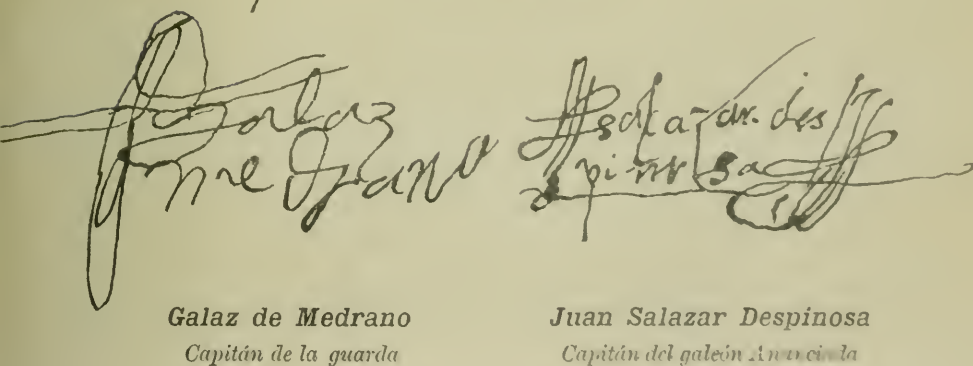 galaz
medrano
salazar des
pinosa
Galaz de Medrano
Capitán de la guarda
Juan Salazar Despinosa
Capitán del galeón Anunciada